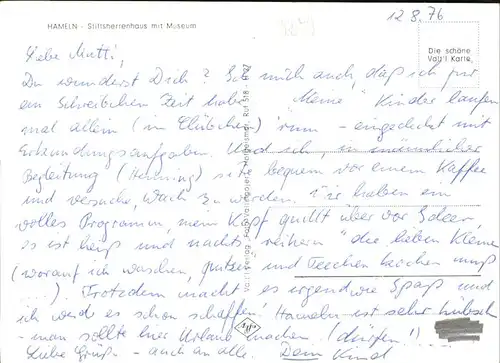 HAMELN - Stiftsherrenhaus mit Museum
12.8.76
Die schöne
Vatï Karte.
Liebe Mutti,
Du wunderst Dich? Ich mich auch, daß ich für
ein Schreibchen Zeit habe. "Meine" Kinder laufen
mal allein (in Clübchen) rum - eingedeckt mit
Erkundungsaufgaben. Und ich, in männlicher
Begleitung (Henning) sitze bequem vor einem Kaffee
und versuche, wach zu werden. Wir haben ein
volles Programm, mein Kopf quillt über vor Ideen,
es ist heiß und nachts "reihern" die lieben Kleinen
(worauf ich waschen, putzen und Teechen kochen muß
....) Trotzdem macht es irgendwie Spaß und
ich werde es schon schaffen! Hameln ist sehr hübsch
- man sollte hier Urlaub machen (dürfen!)....
Liebe Grüße - auch an alle. Dein Kind
Agfa